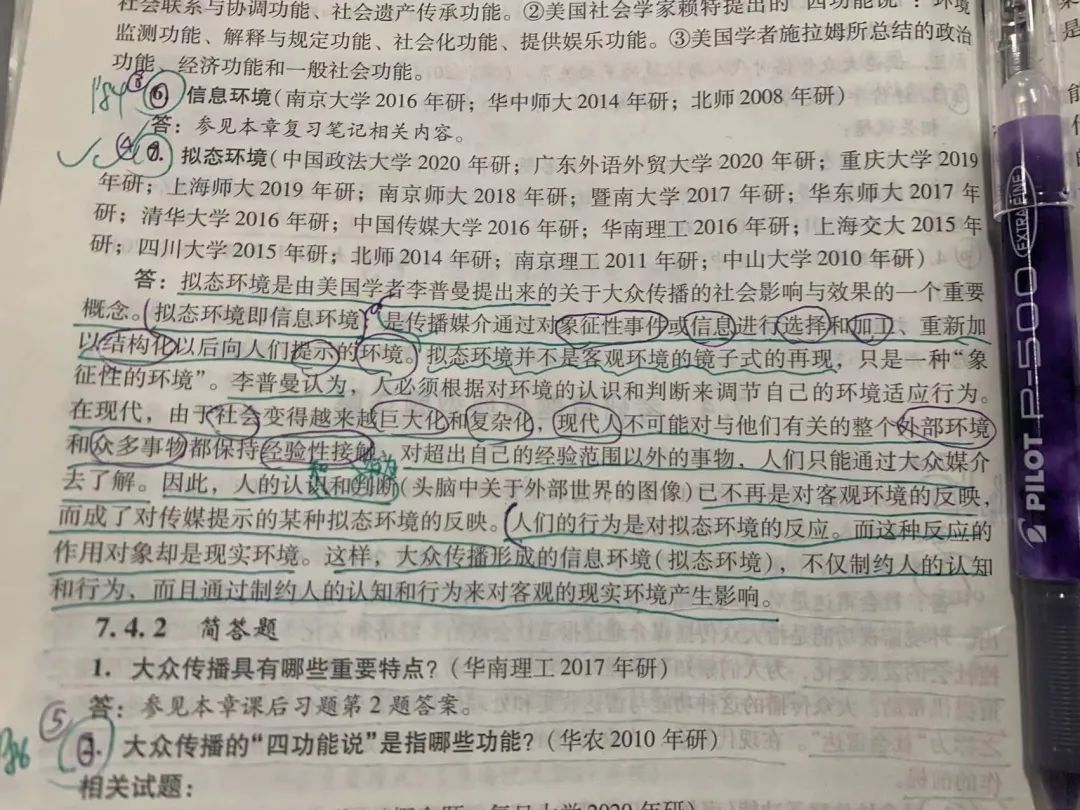 社会联系与协调功能、社会遗产传承功能。②美国社会学家赖特提出的“四功能说”：环境
监测功能、解释与规定功能、社会化功能、提供娱乐功能。③美国学者施拉姆所总结的政治
功能、经济功能和一般社会功能。
P84 ③ 6. 信息环境(南京大学 2016 年研；华中师大 2014 年研；北师 2008 年研)
答：参见本章复习笔记相关内容。
④ 7. 拟态环境(中国政法大学 2020 年研；广东外语外贸大学 2020 年研；重庆大学 2019
年研；上海师大 2019 年研；南京师大 2018 年研；暨南大学 2017 年研；华东师大 2017 年
研；清华大学 2016 年研；中国传媒大学 2016 年研；华南理工 2016 年研；上海交大 2015 年
研；四川大学 2015 年研；北师 2014 年研；南京理工 2011 年研；中山大学 2010 年研)
答：拟态环境是由美国学者李普曼提出来的关于大众传播的社会影响与效果的一个重要
概念。拟态环境即信息环境，是传播媒介通过对象征性事件或信息进行选择和加工、重新加
以结构化以后向人们提示的环境。拟态环境并不是客观环境的镜子式的再现，只是一种“象
征性的环境”。李普曼认为，人必须根据对环境的认识和判断来调节自己的环境适应行为。
在现代，由于社会变得越来越巨大化和复杂化，现代人不可能对与他们有关的整个外部环境
和众多事物都保持经验性接触，对超出自己的经验范围以外的事物，人们只能通过大众媒介
去了解。因此，人的认识和判断(头脑中关于外部世界的图像)已不再是对客观环境的反映，
而成了对传媒提示的某种拟态环境的反映。人们的行为是对拟态环境的反应。而这种反应的
作用对象却是现实环境。这样，大众传播形成的信息环境(拟态环境)，不仅制约人的认知
和行为，而且通过制约人的认知和行为来对客观的现实环境产生影响。
7.4.2 简答题
1. 大众传播具有哪些重要特点？(华南理工 2017 年研)
答：参见本章课后习题第 2 题答案。
⑤ 2. 大众传播的“四功能说”是指哪些功能？(华农 2010 年研)
相关试题：
PILOT P-500 EXTRA FINE